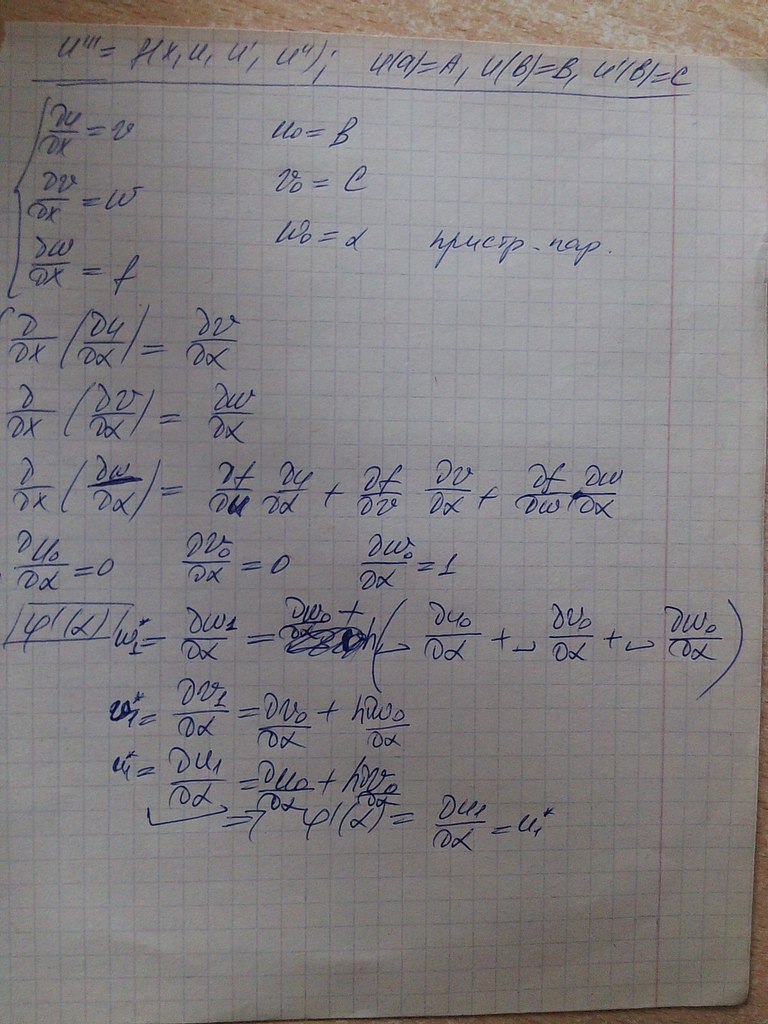 u''' = f(x, u, u', u''); u(a)=A, u(B)=B, u'(B)=C
∂u/∂x = v u₀ = B
∂v/∂x = w v₀ = C
∂w/∂x = f w₀ = α пристр. пар.
∂/∂x (∂u/∂α) = ∂v/∂α
∂/∂x (∂v/∂α) = ∂w/∂α
∂/∂x (∂w/∂α) = ∂f/∂u ∂u/∂α + ∂f/∂v ∂v/∂α + ∂f/∂w ∂w/∂α
∂u₀/∂α = 0 ∂v₀/∂α = 0 ∂w₀/∂α = 1
φ'(α) w₁* = ∂w₁/∂α = ∂w₀/∂α + h( ∂u₀/∂α + ∂v₀/∂α + ∂w₀/∂α )
v₁* = ∂v₁/∂α = ∂v₀/∂α + h∂w₀/∂α
u₁* = ∂u₁/∂α = ∂u₀/∂α + h∂v₀/∂α
=> φ'(α) = ∂u₁/∂α = u₁*